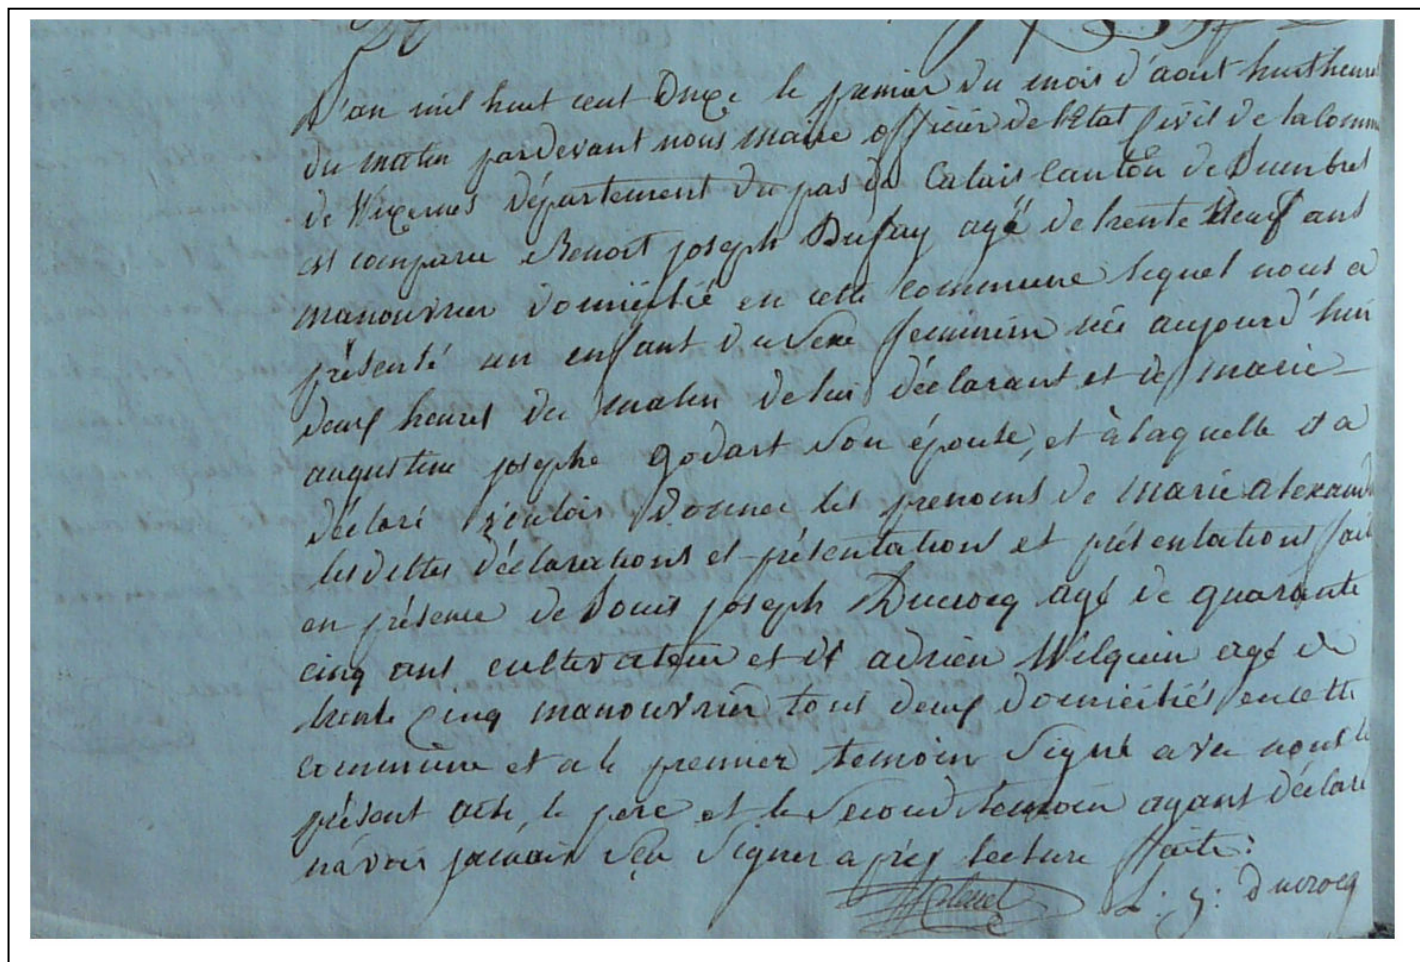 L'an mil huit cent onze le premier du mois d'aout huit heures
du matin pardevant nous maire officier de l'Etat civil de la Comm
de Wismes département du pas de Calais Canton de Lumbres
est comparu Benoit joseph Dufay agé de trente deux ans
manouvrier domicilié en cette commune lequel nous a
présenté un enfant du sexe feminin née aujourd'hui
deux heures du matin de lui déclarant et de marie
augustine josephe Godart son épouse, et à laquelle il a
déclaré vouloir donner les prenoms de marie alexand
les dittes déclarations et présentations et présentations fait
en présence de Louis joseph Ducrocq agé de quarante
cinq ans cultivateur et de adrien Wilquin agé de
trente cinq manouvrier tous deux domiciliés en cette
commune et a le premier temoin signé avec nous le
présent acte, le pere et le second temoin ayant déclaré
n'avoir jamais sçu signer après lecture faite :
L: j: ducrocq